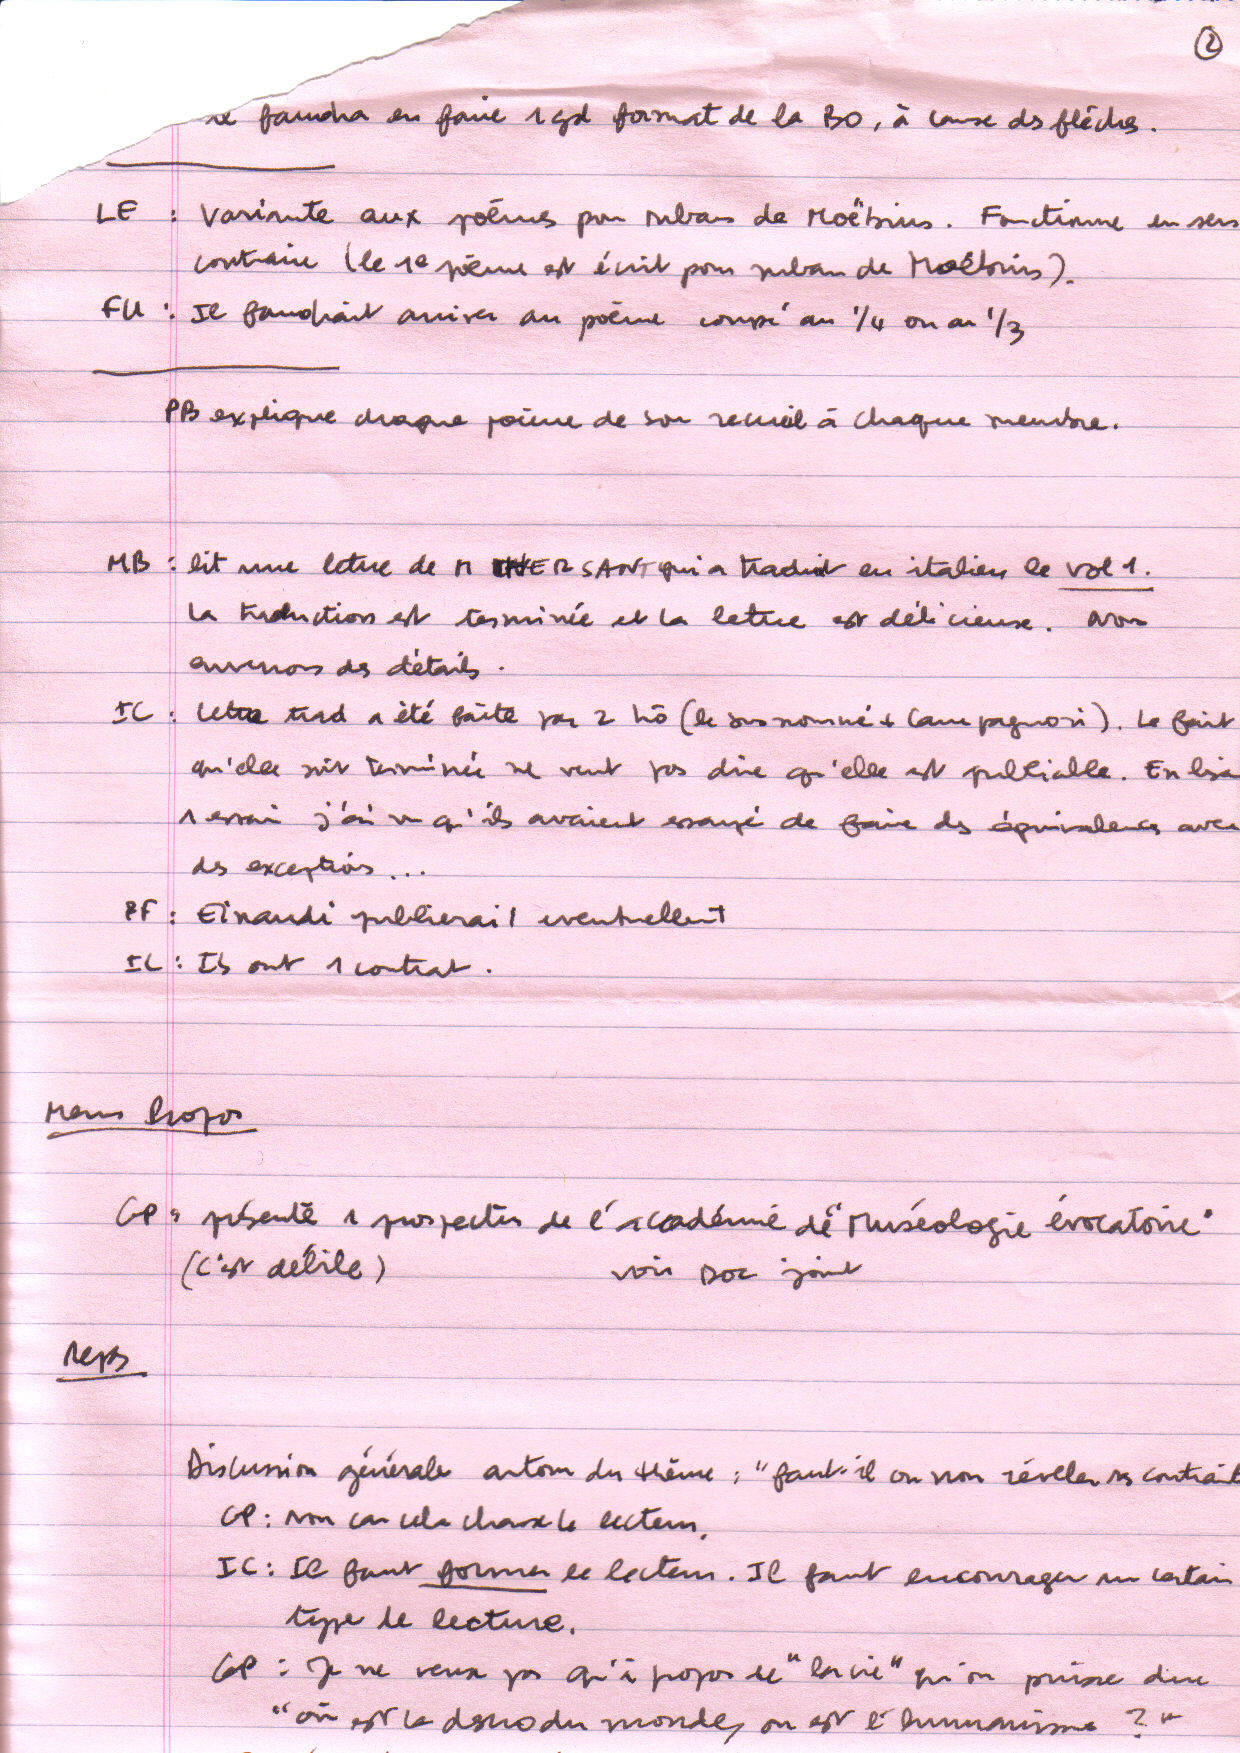 ②
faudra en faire 1 gd format de la BO, à cause ds flèches.
LE : Variante aux poèmes pour ruban de Moëbius. Fonctionne en sens
contraire (le 1e poème est écrit pour ruban de Moëbius).
FU : Il faudrait arriver au poème coupé au 1/4 ou au 1/3
PB explique chaque poème de son recueil à chaque membre.
MB : lit une lettre de M HERSANT qui a traduit en italien le vol 1.
La traduction est terminée et la lettre est délicieuse. Nous
enverrons des détails.
IC : trad a été faite par 2 (le susnommé + Campagnoli). Le fait
qu'elle soit terminée ne veut pas dire qu'elle est publiable. En lisa
1 essai j'ai vu qu'ils avaient essayé de faire des équivalences avec
des exceptions ...
PF : Einaudi publierait eventuellent
IC : Ils ont 1 contrat.
Menus Propos
GP : présente 1 prospectus de l'accadémie de "Muséologie évocatoire"
(c'est débile) voir Doc joint
Discussion générale autour du thème : "faut-il ou non révéler ses contraint
GP : non car cela chasse le lecteur.
IC : Il faut former le lecteur. Il faut encourager un certain
type de lecture.
GP : Je ne veux pas qu'à propos de "la vie" qu'on puisse dire
"où est la descro du monde, ou est l'humanisme ?"